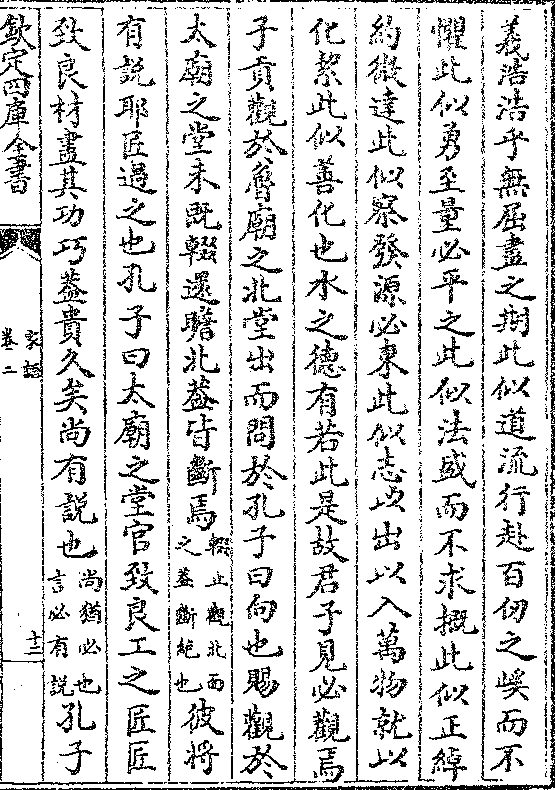 義浩浩乎無屈盡之期此似道流行赴百仞之嵠而不
懼此似勇至量必平之此似法盛而不求概此似正綽
約微達此似察發源必東此似志以出以入萬物就以
化絜此似善化也水之德有若此是故君子見必觀焉
子貢觀於魯廟之北堂出而問於孔子曰向也賜觀於
太廟之堂未既輟還瞻北葢皆斷焉輟止觀北面之葢斷絶也彼將
有說耶匠過之也孔子曰太廟之堂官致良工之匠匠
致良材盡其功巧葢貴久矣尚有說也尚猶必也言必有説孔子
欽定四庫全書
家語
卷二
十三